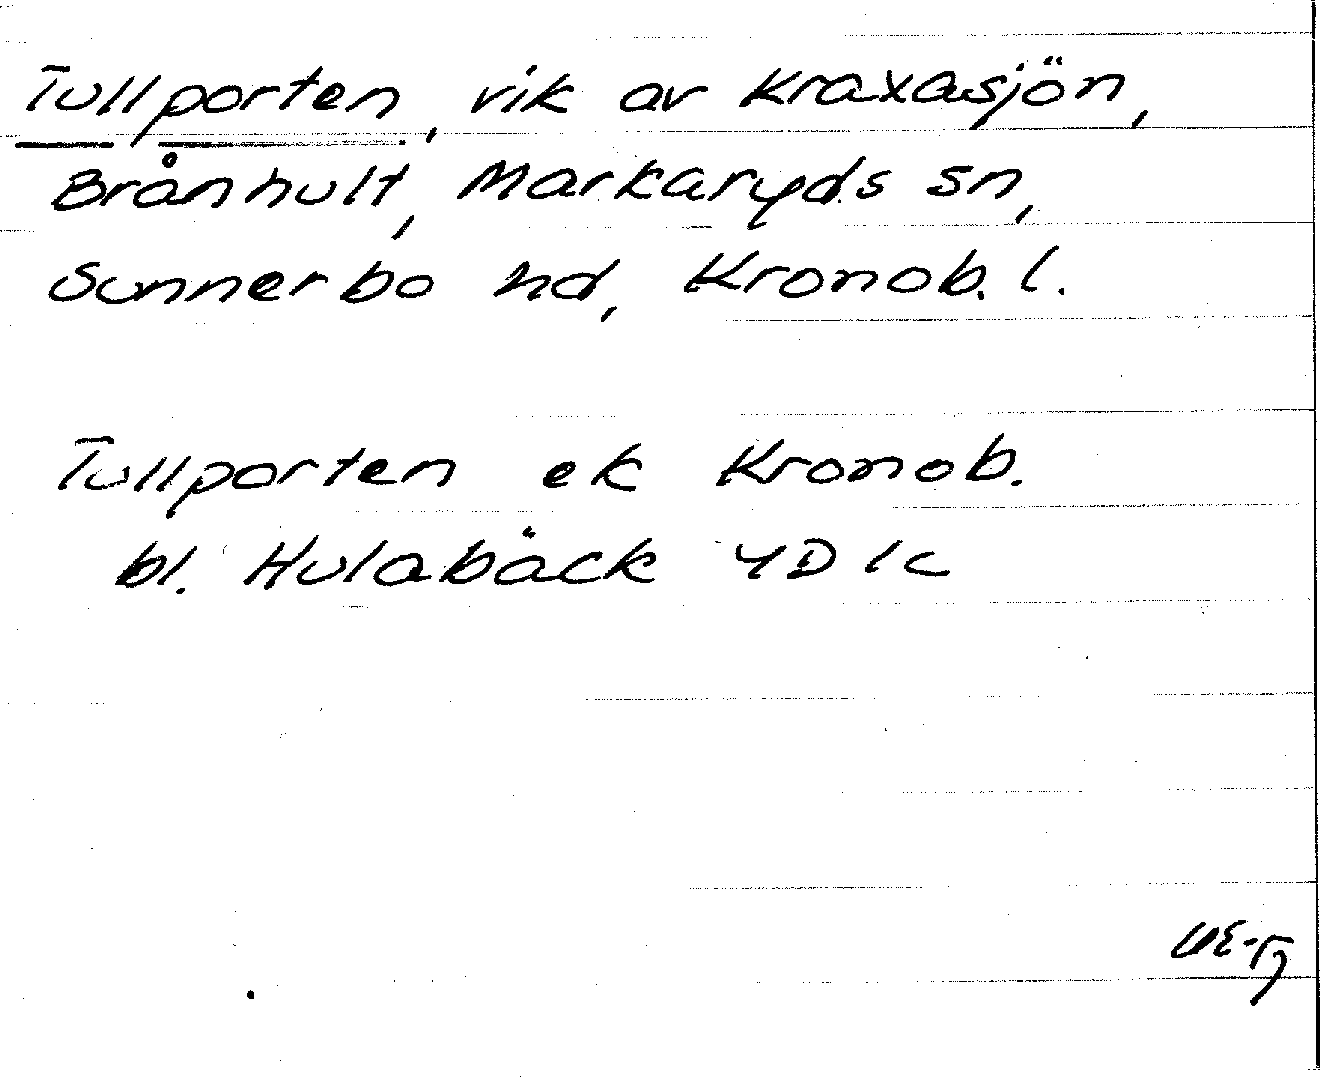 Tullporten, vik av Kraxasjön,
Brånhult, Markaryds sn,
Sunnerbo hd, Kronob. l.
Tullporten ek Kronob.
bl. Hulabäck 4D 1c